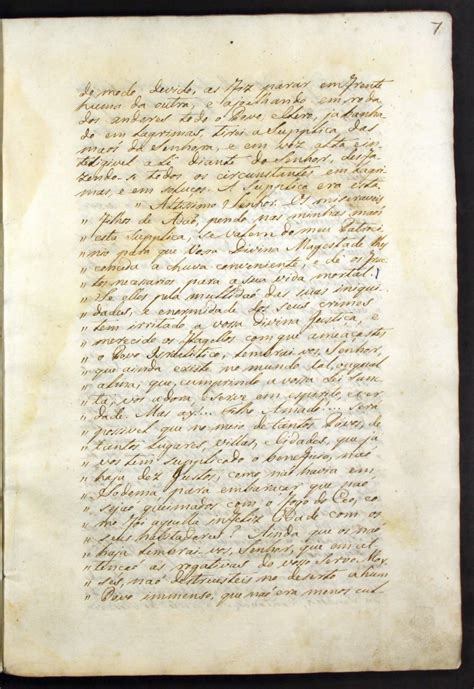 7
do modo devido, as fez parar em frente
huma da outra, e
dos andores todo o Povo, e Clero, já banha
do em Lagrimas, tirei a Supplica das
maõs da Senhora, e em voz alta e in-
teligivel a li diante do Senhor, desfa-
zendo-se todos os circunstantes em lagri-
mas, e em soluços. A Supplica era esta.
" Altissimo Senhor. Os miseraveis
" filhos de Adaõ, pondo nas minhas maõs
" esta Supplica, se valem do meu Patroci-
" nio para que Vossa Divina Magestade lhes
" conceda a chuva conveniente, e dê os fru-
" tos necesarios para a sua vida mortal.
" Se elles pela multidaõ das suas iniqui-
" dades, e enormidade dos seus crimes
" tem irritado a vossa Divina Justiça, e
" merecido os flagellos com que ameaçastes
" o Povo Israelitico, lembrai vos, Senhor,
" que ainda existe no mundo tal, ou qual
" alma, que, cumprindo a vossa Lei San-
" ta, vos adora, e serve em espirito, e ver-
" dade. Mas ay... Filho Amado... Será
" possivel que no meio de tantos Povos, de
" tantos Lugares, Villas, e Cidades, que já
" vos tem supplicado o beneficio, naõ
" haja dez Justos, como naõ havia em
" Sodoma para embaraçar que naõ
" sejaõ queimados com o fogo do Ceo, co-
" mo foi aquella infeliz Cidade com os
" seus habitadores! Ainda que os naõ
" haja lembrai vos, Senhor, que em at-
" tençaõ as rogativas do vosso Servo Moy-
" ses, naõ destruisteis no deserto a hum
" Povo immenso, que naõ era menos cul-